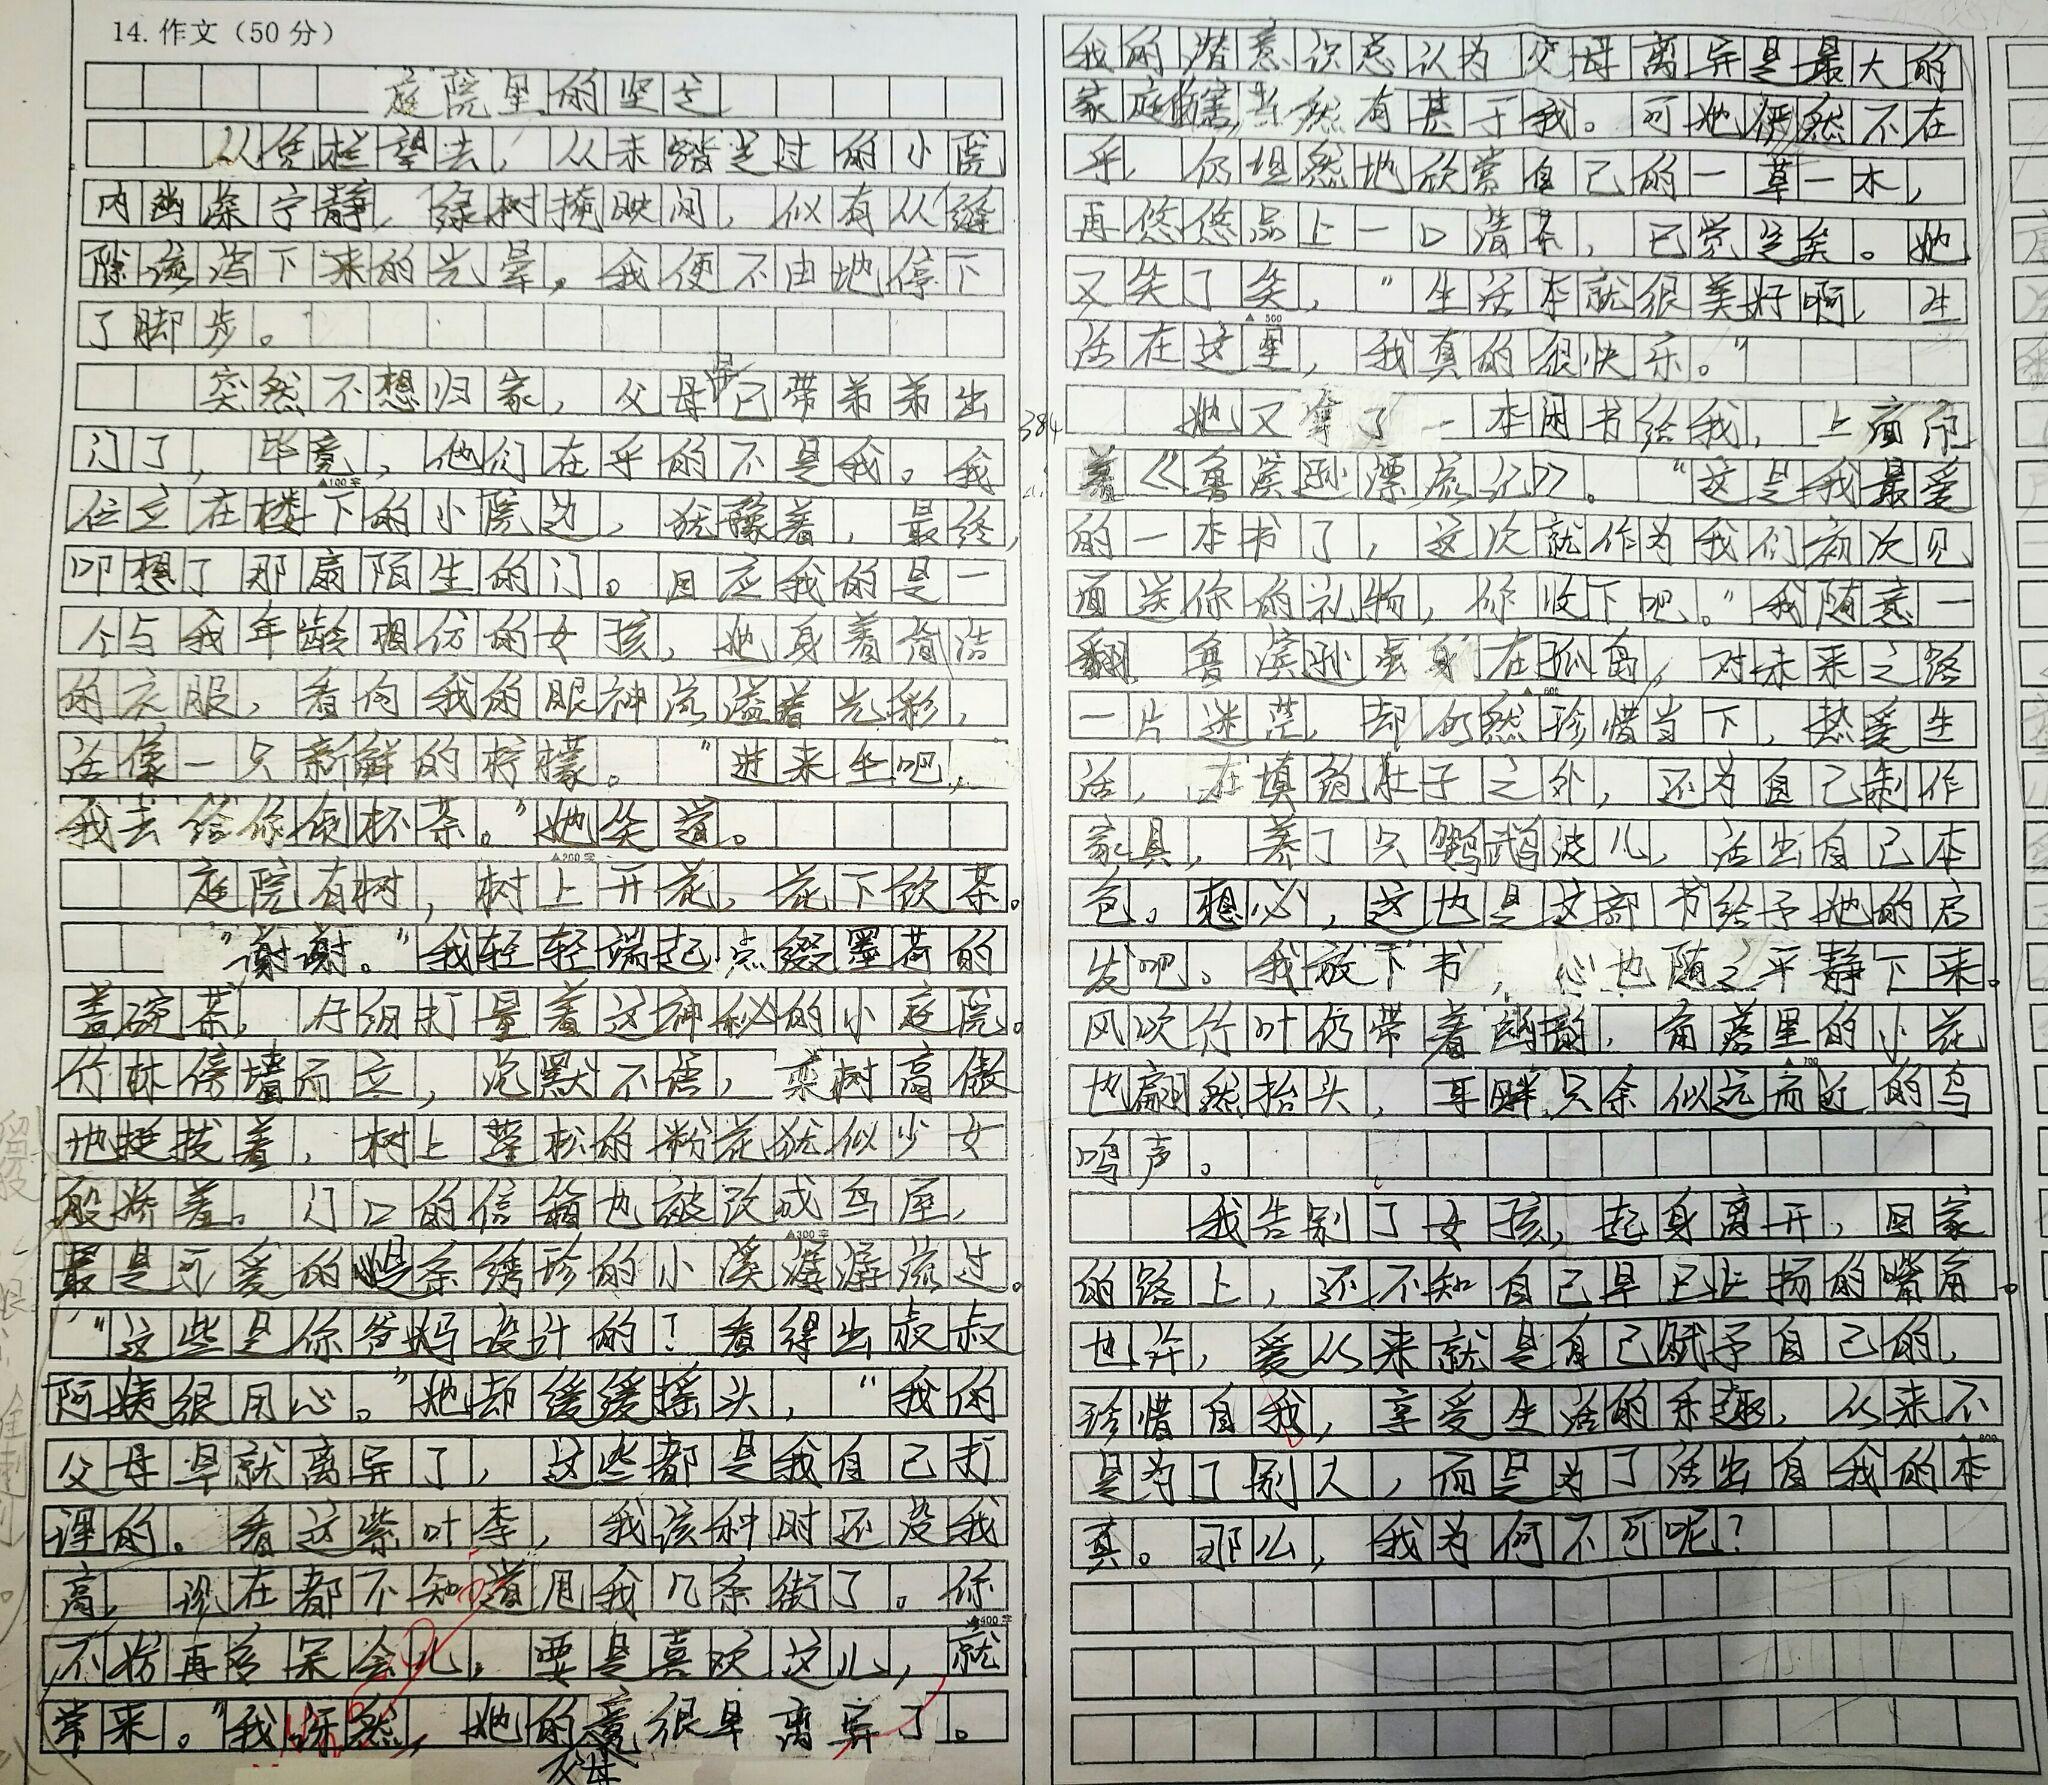 14. 作文（50 分）
庭院里的坚芒
从凭栏望去，从未踏足过的小院
内幽深宁静，绿树掩映间，似有从缝
隙流泻下来的光晕。我便不由地停下
了脚步。
突然不想归家，父母早已带弟弟出
门了，毕竟，他们在乎的不是我。我
▲100字
伫立在楼下的小院边，犹豫着，最终，
叩想了那扇陌生的门。回应我的是一
个与我年龄相仿的女孩，她身着简洁
的衣服，看向我的眼神流溢着光彩，
活像一只新鲜的柠檬。"进来坐吧，
我去给你倾杯茶。"她笑道。
▲200字
庭院有树，树上开花，花下饮茶。
"谢谢。"我轻轻端起点缀墨荷的
盖碗茶，仔细打量着这神秘的小庭院。
竹林傍墙而立，沉默不语，栾树高傲
地挺拔着，树上蓬松的粉花犹似少女
般娇羞。门口的信箱也被改成鸟屋，
最是可爱的是条绣珍的小溪潺潺流过。
▲300字
"这些是你爸妈设计的？看得出叔叔
阿姨很用心。"她却缓缓摇头，"我的
父母早就离异了，这些都是我自己打
理的。看这紫叶李，我该种时还没我
高，现在都不知道甩我几条街了。你
不妨再多呆会儿，要是喜欢这儿，就
▲400字
常来。"我讶然，她的父母竟很早离异了。
我的潜意识总认为父母离异是最大的
家庭伤害，当然有甚于我。可她俨然不在
乎，仍坦然地欣赏自己的一草一木，
再悠悠品上一口清茶，已觉足矣。她
又笑了笑，"生活本就很美好啊，生
▲500
活在这里，我真的很快乐。"
384
她又拿了一本闲书给我，上面印
着《鲁滨逊漂流记》。"这是我最爱
的一本书了，这次就作为我们初次见
面送你的礼物，你收下吧。"我随意一
翻，鲁滨逊虽身在孤岛，对未来之路
▲600
一片迷茫，却仍然珍惜当下，热爱生
活，在填饱肚子之外，还为自己制作
家具，养了只鹦鹉波儿，活出自己本
色。想必，这也是这部书给予她的启
发吧。我放下书，心也随之平静下来。
风吹竹叶仍带着幽韵，角落里的小花
▲700
也翩然抬头，耳畔只余似远而近的鸟
鸣声。
我告别了女孩，起身离开，回家
的路上，还不知自己早已上扬的嘴角。
也许，爱从来就是自己赋予自己的，
珍惜自我，享受生活的乐趣，从来不
▲800
是为了别人，而是为了活出自我的本
真。那么，我为何不可呢？